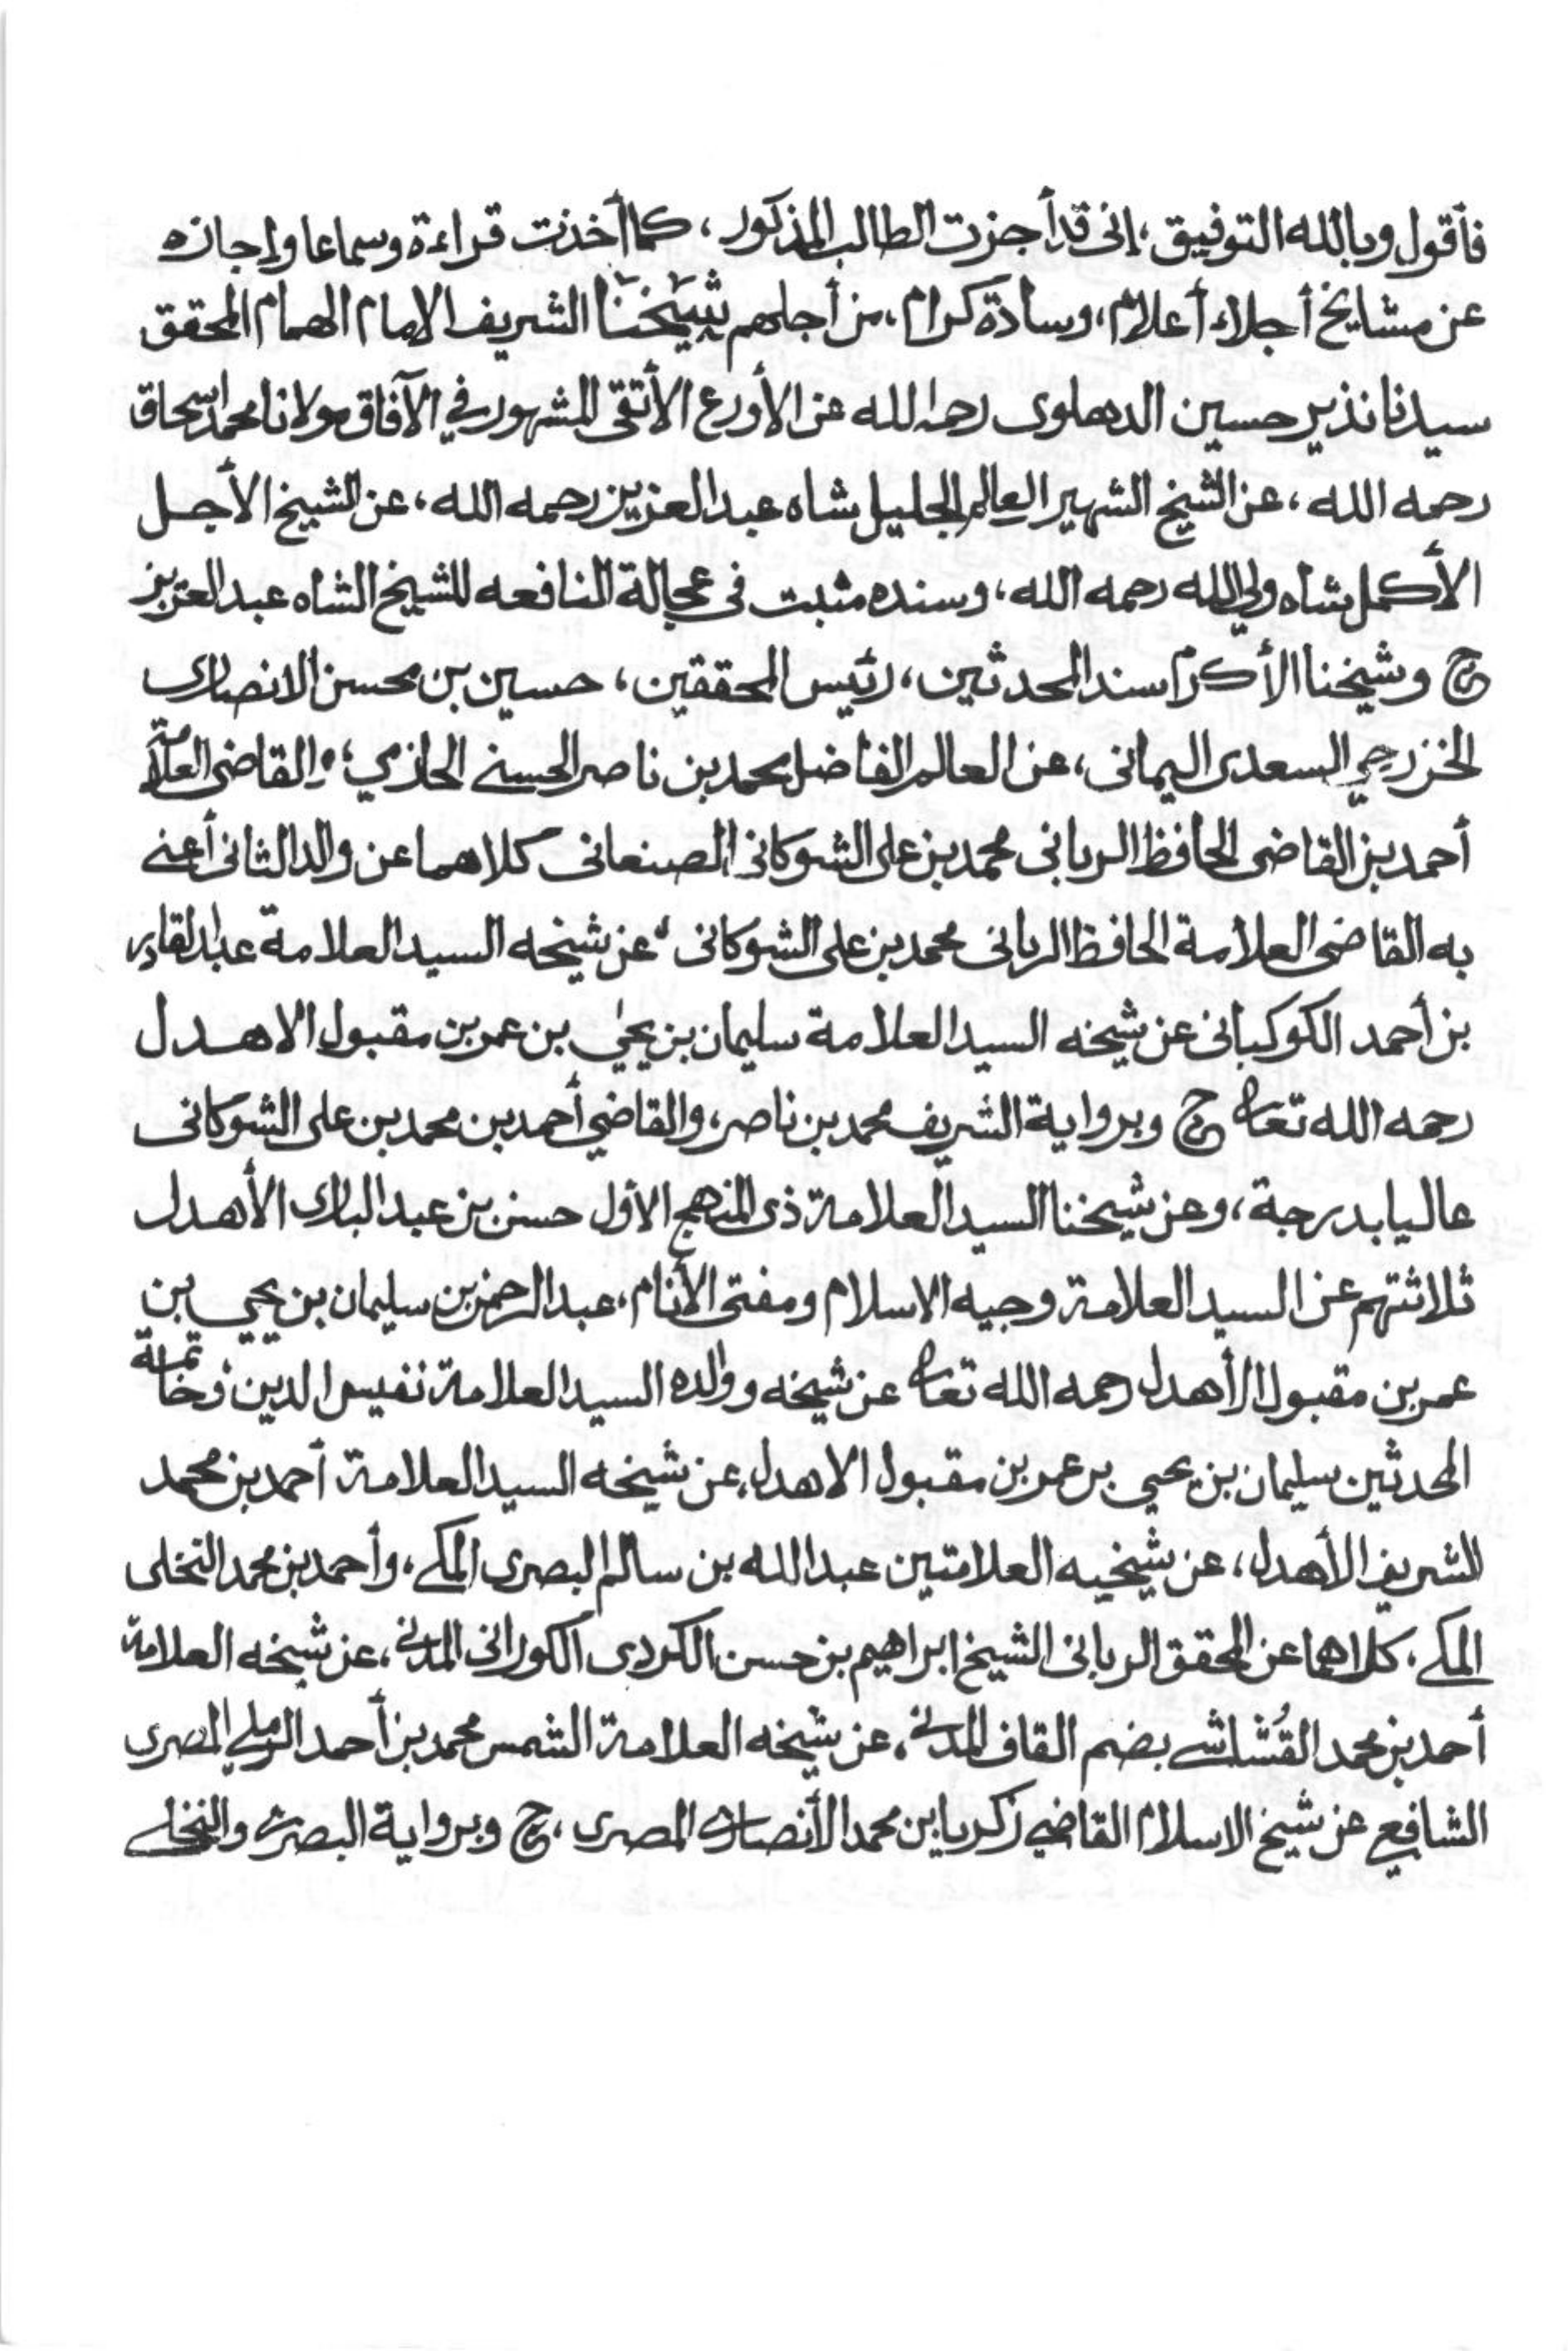 فأقول وبالله التوفيق، إنى قد أجزت الطالب المذكور، كما أخذت قراءة وسماعا وإجازه
عن مشايخ أجلاء أعلام، وسادة كرام، من أجلهم شيخنا الشريف الامام الهمام المحقق
سيدنا نذير حسين الدهلوى رحمه الله عن الأورع الأتقى المشهور في الآفاق مولانا محمد اسحاق
رحمه الله، عن الشيخ الشهير العالم الجليل شاه عبد العزيز رحمه الله، عن الشيخ الأجل
الأكمل شاه ولي الله رحمه الله، وسنده مثبت فى عجالة النافعه للشيخ الشاه عبد العزيز
ح وشيخنا الأكرم سند المحدثين، رئيس المحققين، حسين بن محسن الانصارى
الخزرجي السعدى اليمانى، عن العالم الفاضل محمد بن ناصر الحسنے الحازمي؛ والقاضى العلامة
أحمد بن القاضى الحافظ الربانى محمد بن على الشوكانى الصنعانى كلاهما عن والد الثانى أعنے
به القاضى العلامة الحافظ الربانى محمد بن على الشوكانى، عن شيخه السيد العلامة عبد القادر
بن أحمد الكوكبانى عن شيخه السيد العلامة سليمان بن يحيٰي بن عمر بن مقبول الاهدل
رحمه الله تعالى ح وبرواية الشريف محمد بن ناصر، والقاضي أحمد بن محمد بن على الشوكانى
عاليا بدرجة، وعن شيخنا السيد العلامة ذى المنهج الأول حسن بن عبد البارى الأهدل
ثلاثتهم عن السيد العلامة وجيه الاسلام ومفتى الأنام، عبد الرحمن بن سليمان بن يحيي بن
عمر بن مقبول الأهدل رحمه الله تعالى عن شيخه ووالده السيد العلامة نفيس الدين وخاتمة
المحدثين سليمان بن يحيي بن عمر بن مقبول الاهدل، عن شيخه السيد العلامة أحمد بن محمد
الشريف الأهدل، عن شيخيه العلامتين عبد الله بن سالم البصرى المكے، وأحمد بن محمد النخلى
المكے، كلاهما عن المحقق الربانى الشيخ ابراهيم بن حسن الكردى الكورانى المدنے، عن شيخه العلامة
أحمد بن محمد القُشاشے بضم القاف المدنے، عن شيخه العلامة الشمس محمد بن أحمد الرملي المصرى
الشافعي عن شيخ الاسلام القاضي زكريا بن محمد الأنصارى المصرى، ح وبرواية البصرى والنخلے